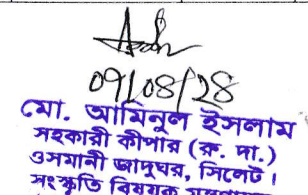 ০৭/০৪/২৪
মো. আমিনুল ইসলাম
সহকারী কীপার (রু. দা.)
ওসমানী জাদুঘর, সিলেট।
সংস্কৃতি বিষয়ক